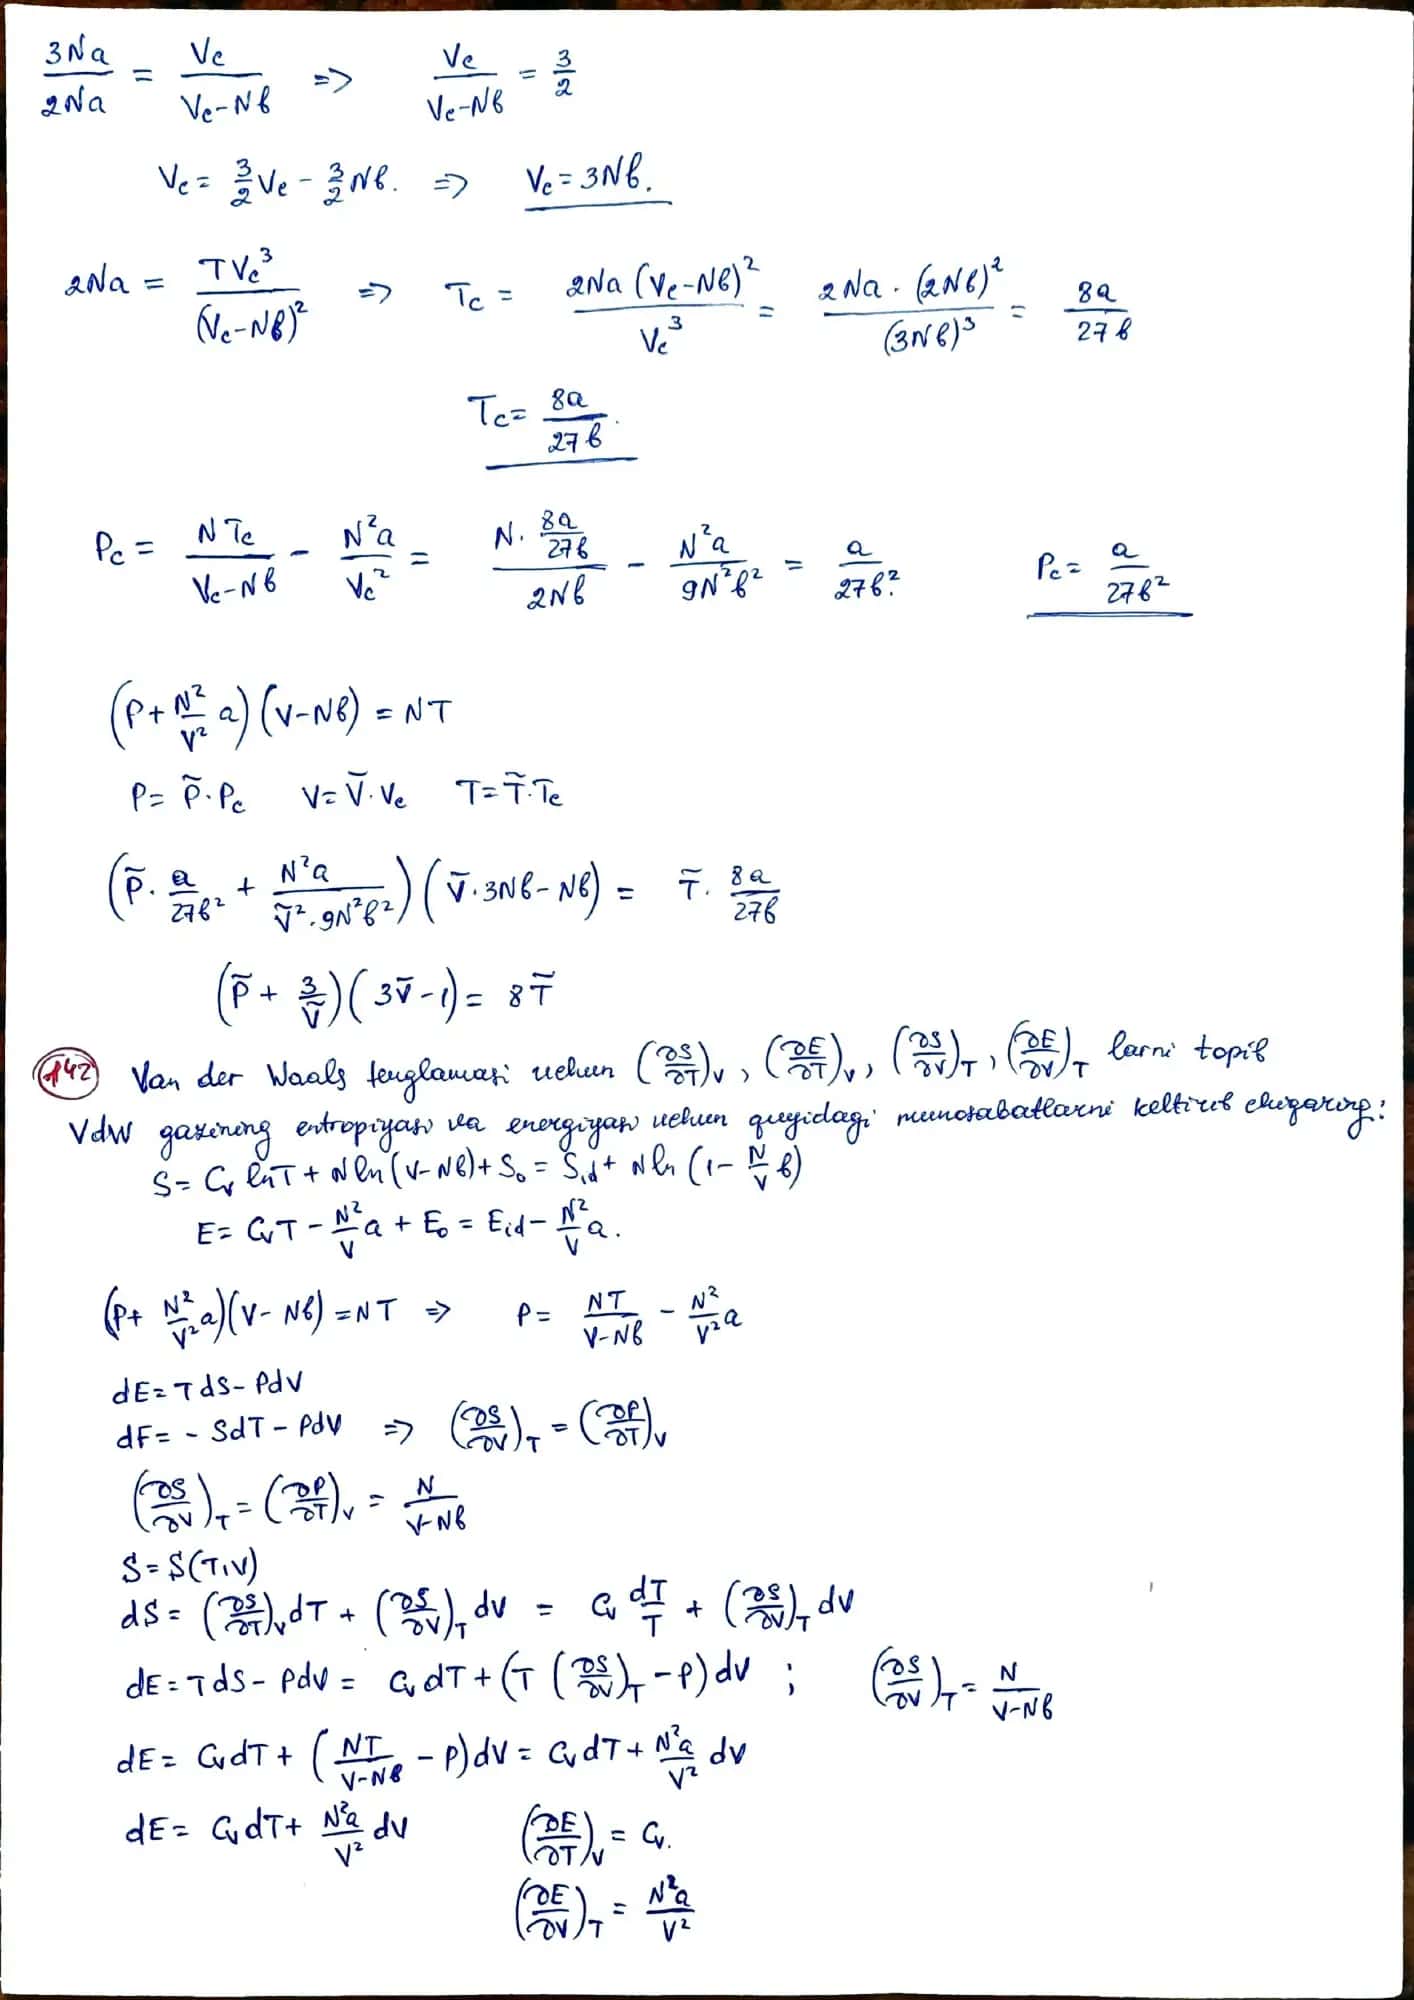 3Na/2Na = Vc/(Vc-Nb) => Vc/(Vc-Nb) = 3/2
Vc = 3/2 Vc - 3/2 Nb. => Vc = 3Nb.
2Na = TVc³/(Vc-Nb)² => Tc = 2Na(Vc-Nb)²/Vc³ = 2Na·(2Nb)²/(3Nb)³ = 8a/27b
Tc = 8a/27b.
Pc = NTc/(Vc-Nb) - N²a/Vc² = (N·8a/27b)/2Nb - N²a/9N²b² = a/27b². Pc = a/27b²
(P + N²/V² a)(V-Nb) = NT
P = P̃·Pc V = Ṽ·Vc T = T̃·Tc
(P̃·a/27b² + N²a/Ṽ²·9N²b²)(Ṽ·3Nb-Nb) = T̃·8a/27b
(P̃ + 3/Ṽ)(3Ṽ-1) = 8T̃
142 Van der Waals tenglamasi uchun (∂S/∂T)V, (∂E/∂T)V, (∂S/∂V)T, (∂E/∂V)T larni topib
VdW gazining entropiyasi va energiyasi uchun quyidagi munosabatlarni keltirib chiqaring:
S = CV lnT + N ln(V-Nb) + S₀ = Sid + N ln(1 - N/V b)
E = CVT - N²/V a + E₀ = Eid - N²/V a.
(P + N²/V² a)(V-Nb) = NT => P = NT/(V-Nb) - N²/V² a
dE = TdS - PdV
dF = - SdT - PdV => (∂S/∂V)T = (∂P/∂T)V
(∂S/∂V)T = (∂P/∂T)V = N/(V-Nb)
S = S(T,V)
dS = (∂S/∂T)V dT + (∂S/∂V)T dV = CV dT/T + (∂S/∂V)T dV
dE = TdS - PdV = CV dT + (T(∂S/∂V)T - P)dV ; (∂S/∂V)T = N/(V-Nb)
dE = CV dT + (NT/(V-Nb) - P)dV = CV dT + N²a/V² dV
dE = CV dT + N²a/V² dV (∂E/∂T)V = CV.
(∂E/∂V)T = N²a/V²